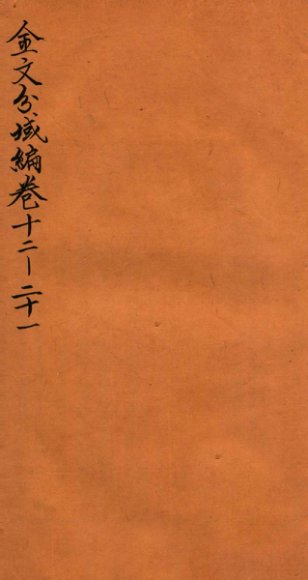 金文分域編卷十二—二十一